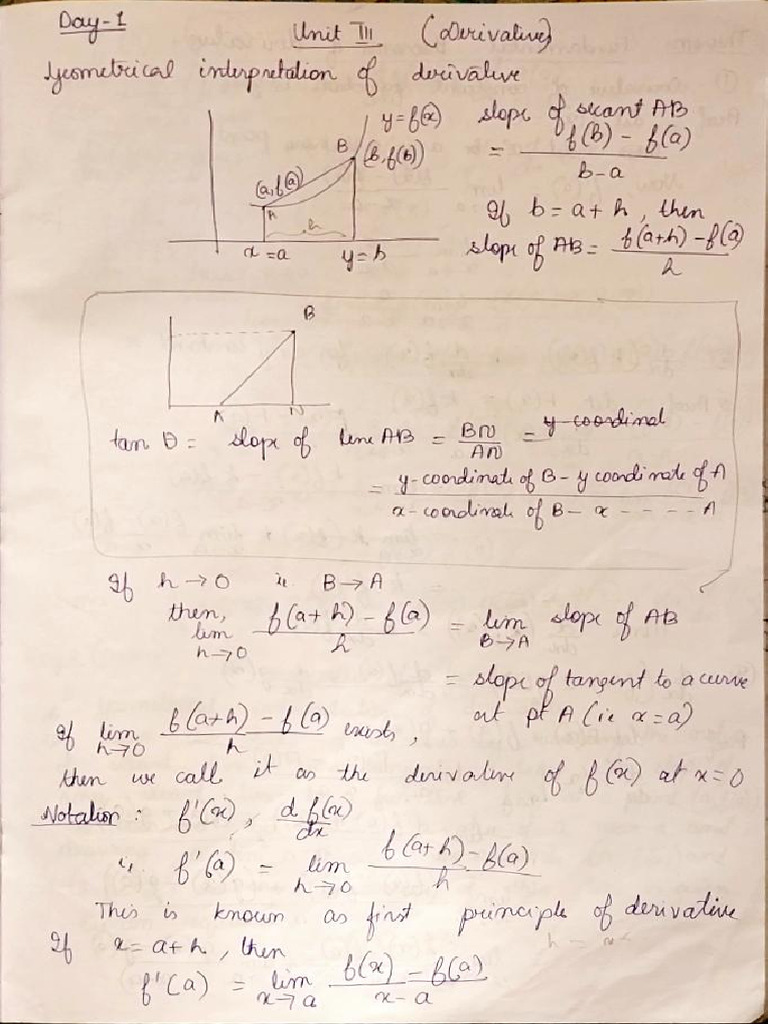 Day-1
Unit III (Derivative)
Geometrical interpretation of derivative
y=f(x)
B
(b, f(b))
(a, f(a))
A
h
x=a
y=b
slope of secant AB
= f(b) - f(a) / b-a
If b=a+h, then
slope of AB = f(a+h)-f(a) / h
B
A
N
tan θ = slope of line AB = BN / AN = y-coordinal
= y-coordinate of B - y coordinate of A / x-coordinate of B - x - - - - - A
If h→0 ie B→A
then,
lim h→0 f(a+h) - f(a) / h = lim B→A slope of AB
= slope of tangent to a curve
at pt A (ie x=a)
If lim h→0 f(a+h) - f(a) / h exists,
then we call it as the derivative of f(x) at x=0
Notation: f'(x), d f(x) / dx
ie f'(a) = lim h→0 f(a+h)-f(a) / h
This is known as first principle of derivative
If x=a+h, then
f'(a) = lim x→a f(x) - f(a) / x-a